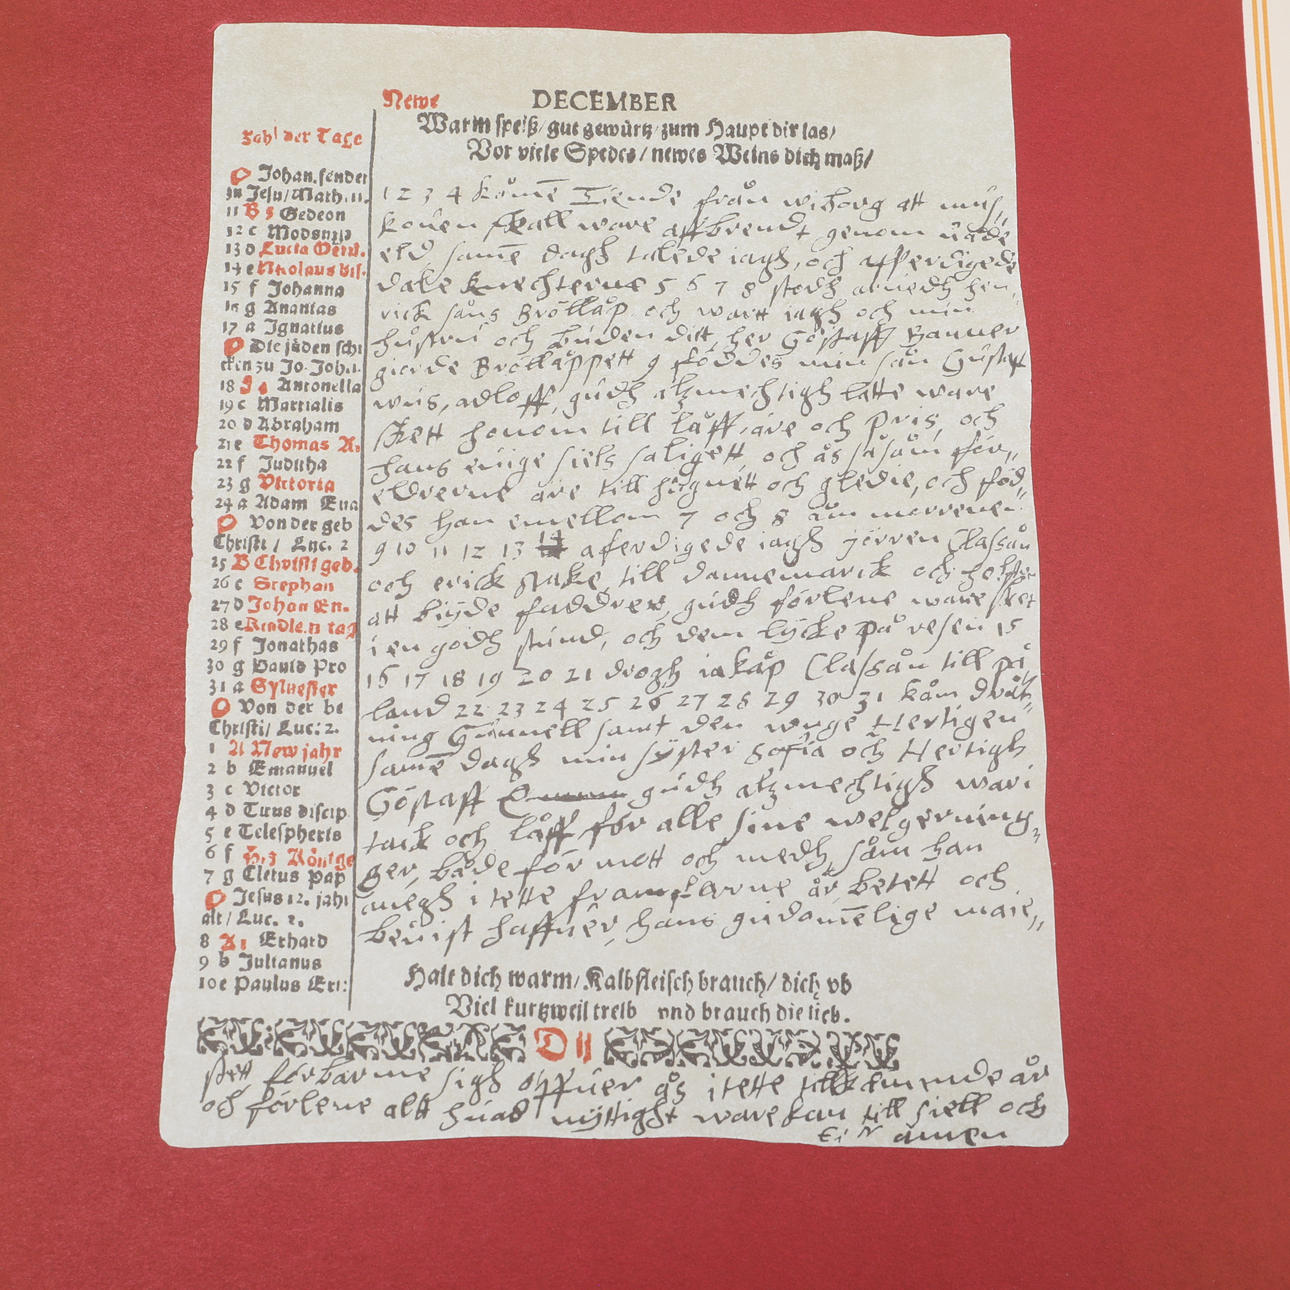 Newe DECEMBER
Warm speiß/ gut gewürtz/ zum Haupt dir las/
Vor viele Spedes/ newes Weins dich maß/
Zahl der Tage
Johan. sendet
zu Jesu/ Math. 11.
11 B 5 Gedeon
12 c
13 d Lucia
14 e Nicolaus
15 f Johanna
16 g Ananias
17 a Ignatius
Die jüden schi
cken zu Jo. Joh. 1.
18 Antonella
19 c Martialis
20 d Abraham
21 e Thomas A.
22 f Juditha
23 g Victoria
24 a Adam Eua
Von der geb
Christi / Luc. 2
25 B Christi geb.
26 c Stephan
27 d Johan En.
28 e Kindle.n tag
29 f Jonathas
30 g Dauid Pro
31 a Syluester
Von der be
Christi/ Luc: 2.
1 A New jahr
2 b Emanuel
3 c Victor
4 d Titus discip
5 e Telesphoris
6 f H. 3 Könige
7 g Cletus Pap
Jesus 12. jahr
alt/ Luc. 2.
8 A Erhard
9 b Julianus
10 c Paulus Eri:
1 2 3 4 kome Tiende från wiborg att mus,,
kouen skall ware affbrendt genom wåde
eld, samē dagh talede iagh, och afferdigede
dake knechterne 5 6 7 8 stodh arnedh hen,,
rick såns Bröllåp och wart iagh och min
hustru och buden ditt, her Göstaff Banner
giorde Bröllåppett 9 föddes min sån Gustaf
wus, adloff, gudh alzmechtigh latte ware
skett honom till låff, äre och pris, och
hans euige siels saligett och ås såsom för,,
eldrerne äre till hugnett och gledie, och föd,,
des han emellom 7 och 8 äm morrenen
9 10 11 12 13 aferdigede iagh jörren Classån
och erick stake till dannemarck och
att biude faddrer, gudh förlene ware skett
i en godh stund, och dem lycke på resen 15
16 17 18 19 20 21 drogh iakåp Classån till på
land 22 23 24 25 26 27 28 29 30 31 kåm dråt,,
ning Gunnell samt den unge Hertigen
samē dagh min syster Sofia och Hertigh
Göstaff gudh alzmechtigh wari
tack och låff för alle sine welgerning,,
ger, både för mott och medh, såm han
megh i tette år, betett och
beuist haffuer, hans gudomēlige maie,,
Halt dich warm/ Kalbfleisch brauch/ dich vb
Viel kurtzweil treib vnd brauch die lieb.
D ij
stett förbarme sigh öffuer ås i tette tillkommende år
och förlene alt huad nyttight ware kan till siell och
amen